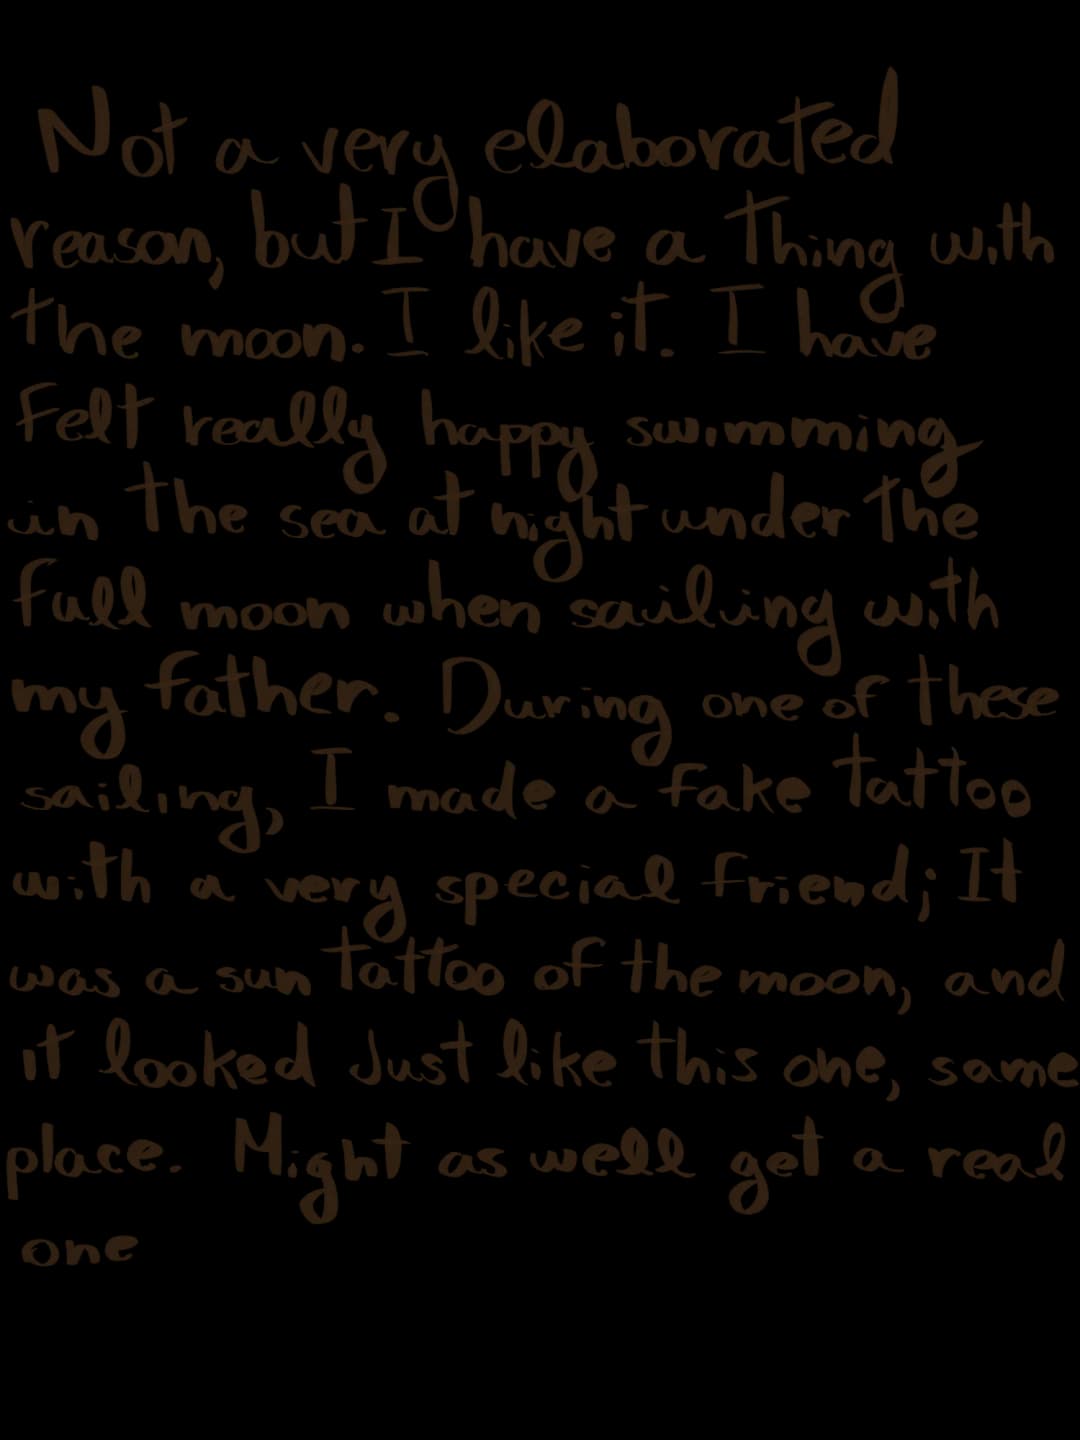 Not a very elaborated
reason, but I have a thing with
the moon. I like it. I have
felt really happy swimming
in the sea at night under the
full moon when sailing with
my father. During one of these
sailing, I made a fake tattoo
with a very special friend; It
was a sun tattoo of the moon, and
it looked Just like this one, same
place. Might as well get a real
one